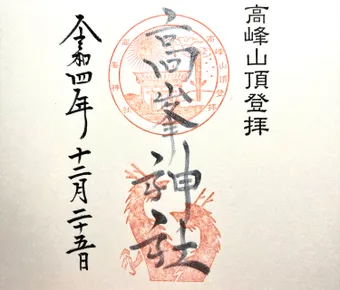 高峰山頂登拝
高峯神社
令和四年 十二月二十五日